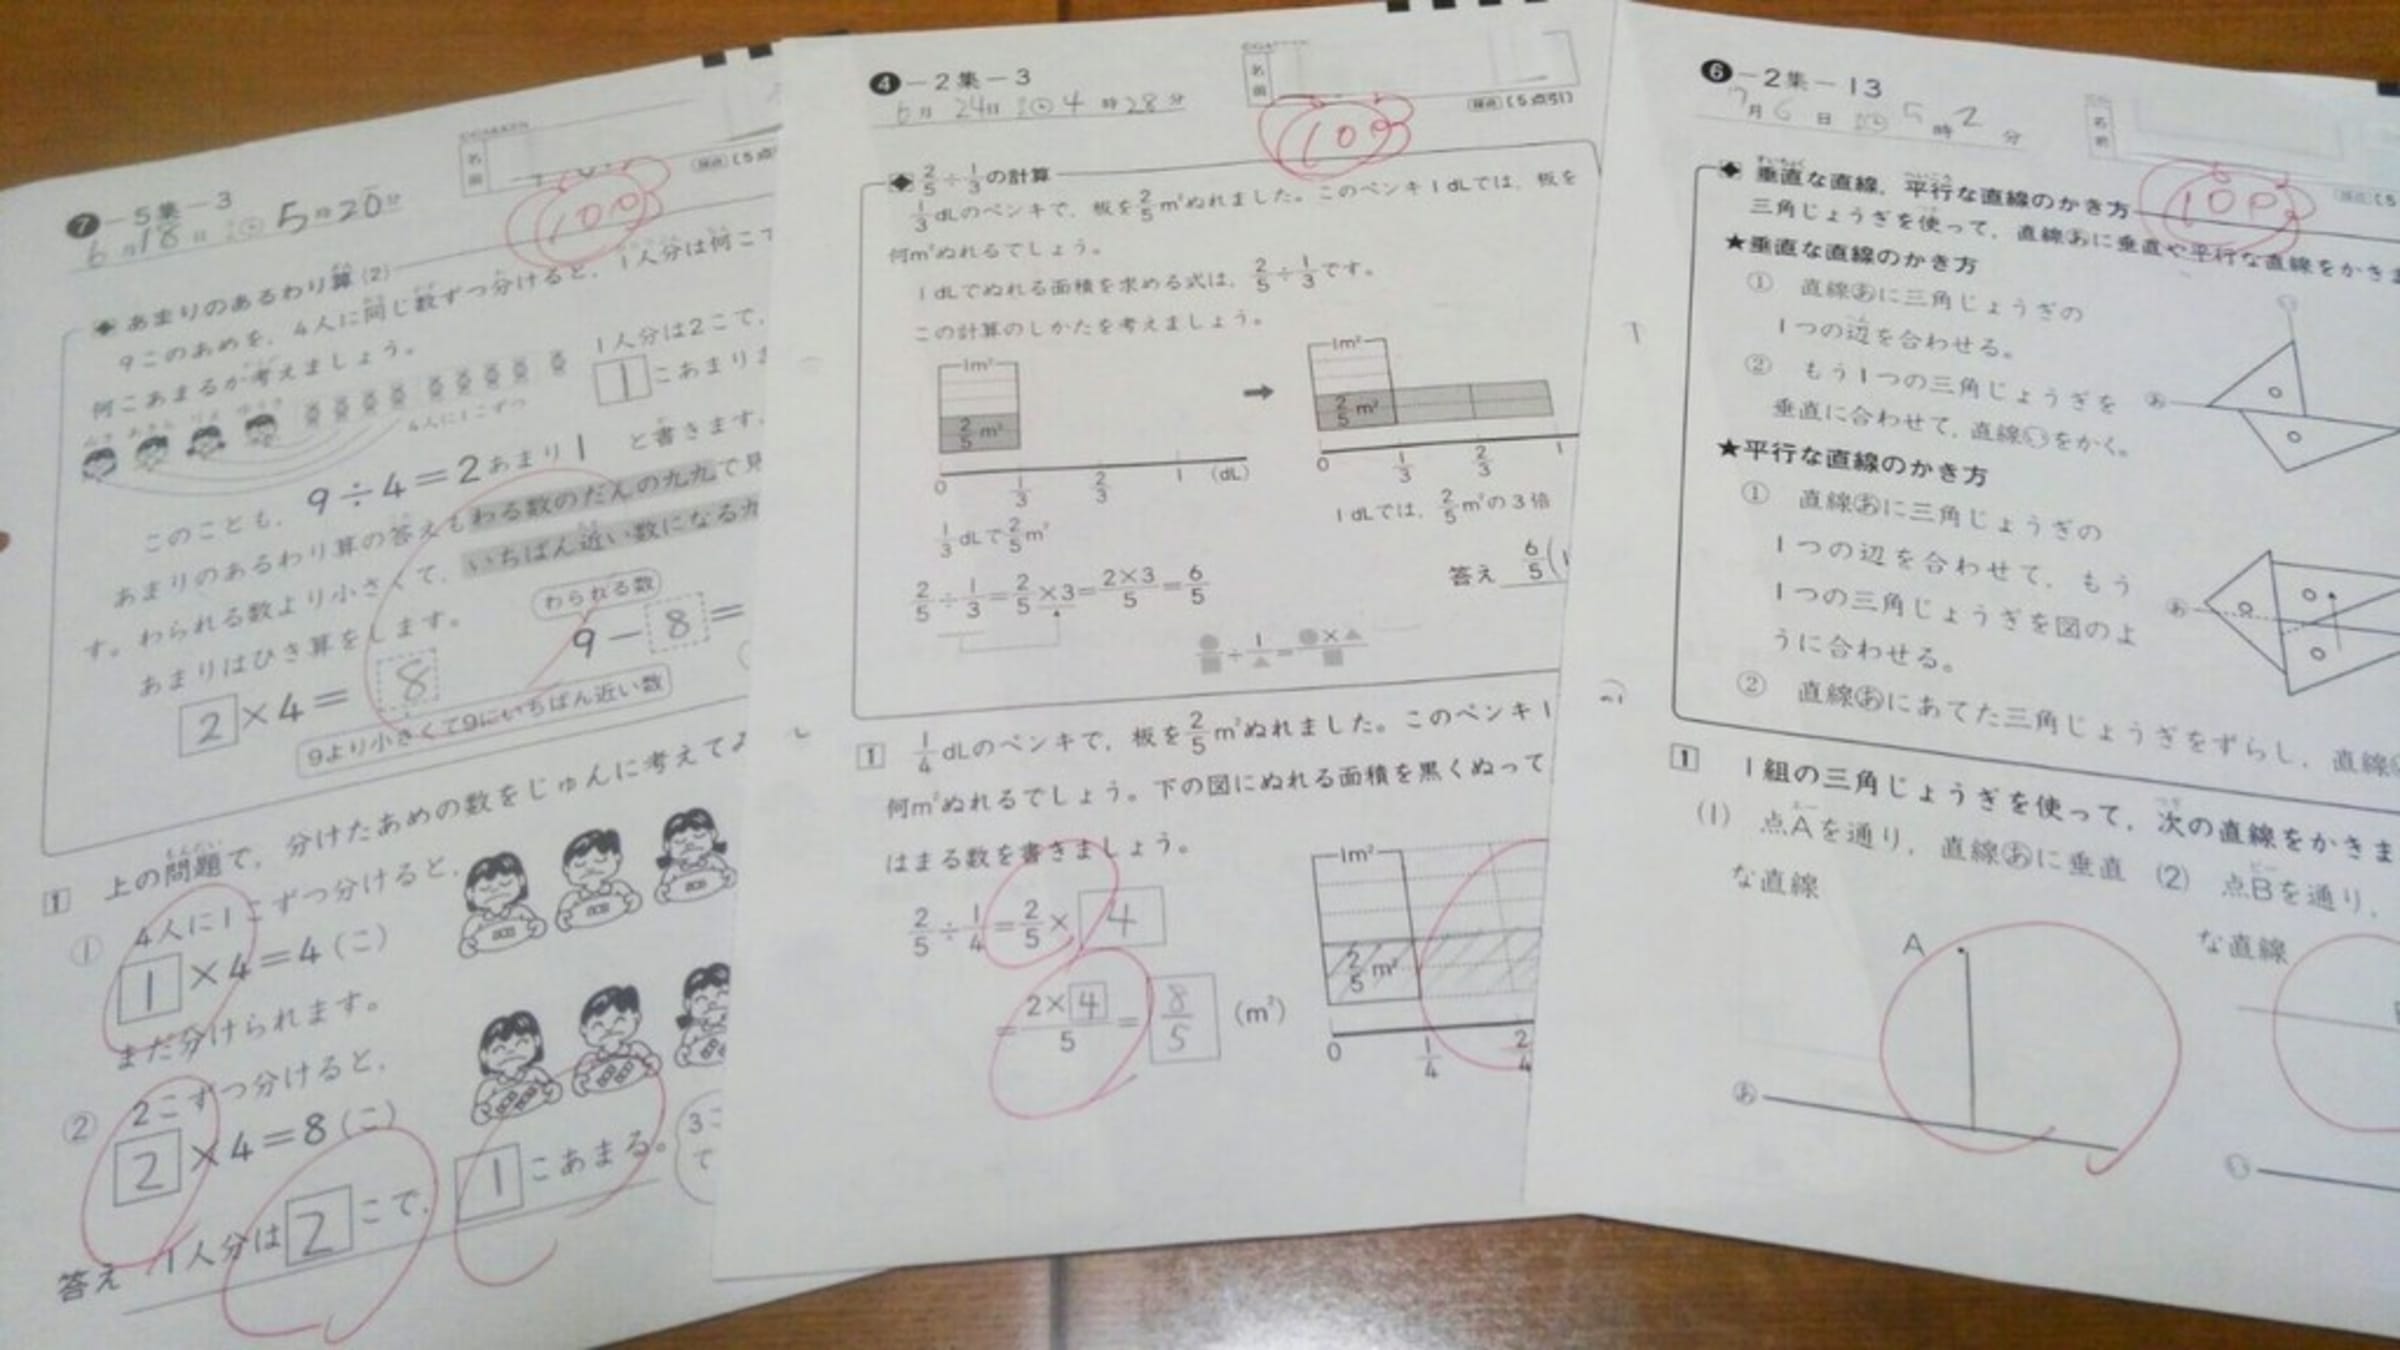 ❼－5集－3
6月18日 5時20分
名前
100
あまりのあるわり算(2)
9このあめを、4人に同じ数ずつ分けると、1人分は何こで
何こあまるか考えましょう。
4人に1こずつ
1人分は2こで、
1こあまりま
このことも、9÷4＝2あまり1 と書きます。
あまりのあるわり算の答えもわる数のだんの九九で見
す。わられる数より小さくて、いちばん近い数になる九
あまりはひき算をします。
わられる数
2×4＝8
9－8＝
9より小さくて9にいちばん近い数
1 上の問題で、分けたあめの数をじゅんに考えてみ
① 4人に1こずつ分けると、
1×4＝4(こ)
まだ分けられます。
② 2こずつ分けると、
2×4＝8(こ)
3こ
で
答え 1人分は2こで、1こあまる。
❹－2集－3
6月24日 4時28分
名前
100
採点(5点引)
2/5÷1/3の計算
1/3dLのペンキで、板を2/5m²ぬれました。このペンキ1dLでは、板を
何m²ぬれるでしょう。
1dLでぬれる面積を求める式は、2/5÷1/3です。
この計算のしかたを考えましょう。
1m²
2/5m²
0 1/3 2/3 1 (dL)
→
1m²
2/5m²
0 1/3 2/3 1
1/3dLで2/5m²
1dLでは、2/5m²の3倍
2/5÷1/3＝2/5×3＝2×3/5＝6/5
答え 6/5(1
●/■÷1/▲＝●×▲/■
1 1/4dLのペンキで、板を2/5m²ぬれました。このペンキ1
何m²ぬれるでしょう。下の図にぬれる面積を黒くぬって
はまる数を書きましょう。
2/5÷1/4＝2/5×4
＝2×4/5＝8/5(m²)
1m²
2/5m²
0 1/4 2/4
❻－2集－13
7月6日 5時2分
名前
100
垂直な直線、平行な直線のかき方
三角じょうぎを使って、直線㋐に垂直や平行な直線をかきま
★垂直な直線のかき方
① 直線あに三角じょうぎの
1つの辺を合わせる。
② もう1つの三角じょうぎを
垂直に合わせて、直線いをかく。
★平行な直線のかき方
① 直線あに三角じょうぎの
1つの辺を合わせて、もう
1つの三角じょうぎを図のよ
うに合わせる。
② 直線あにあてた三角じょうぎをずらし、直線
1 1組の三角じょうぎを使って、次の直線をかきま
(1) 点Aを通り、直線あに垂直
な直線
(2) 点Bを通り、
な直線
A
あ
い